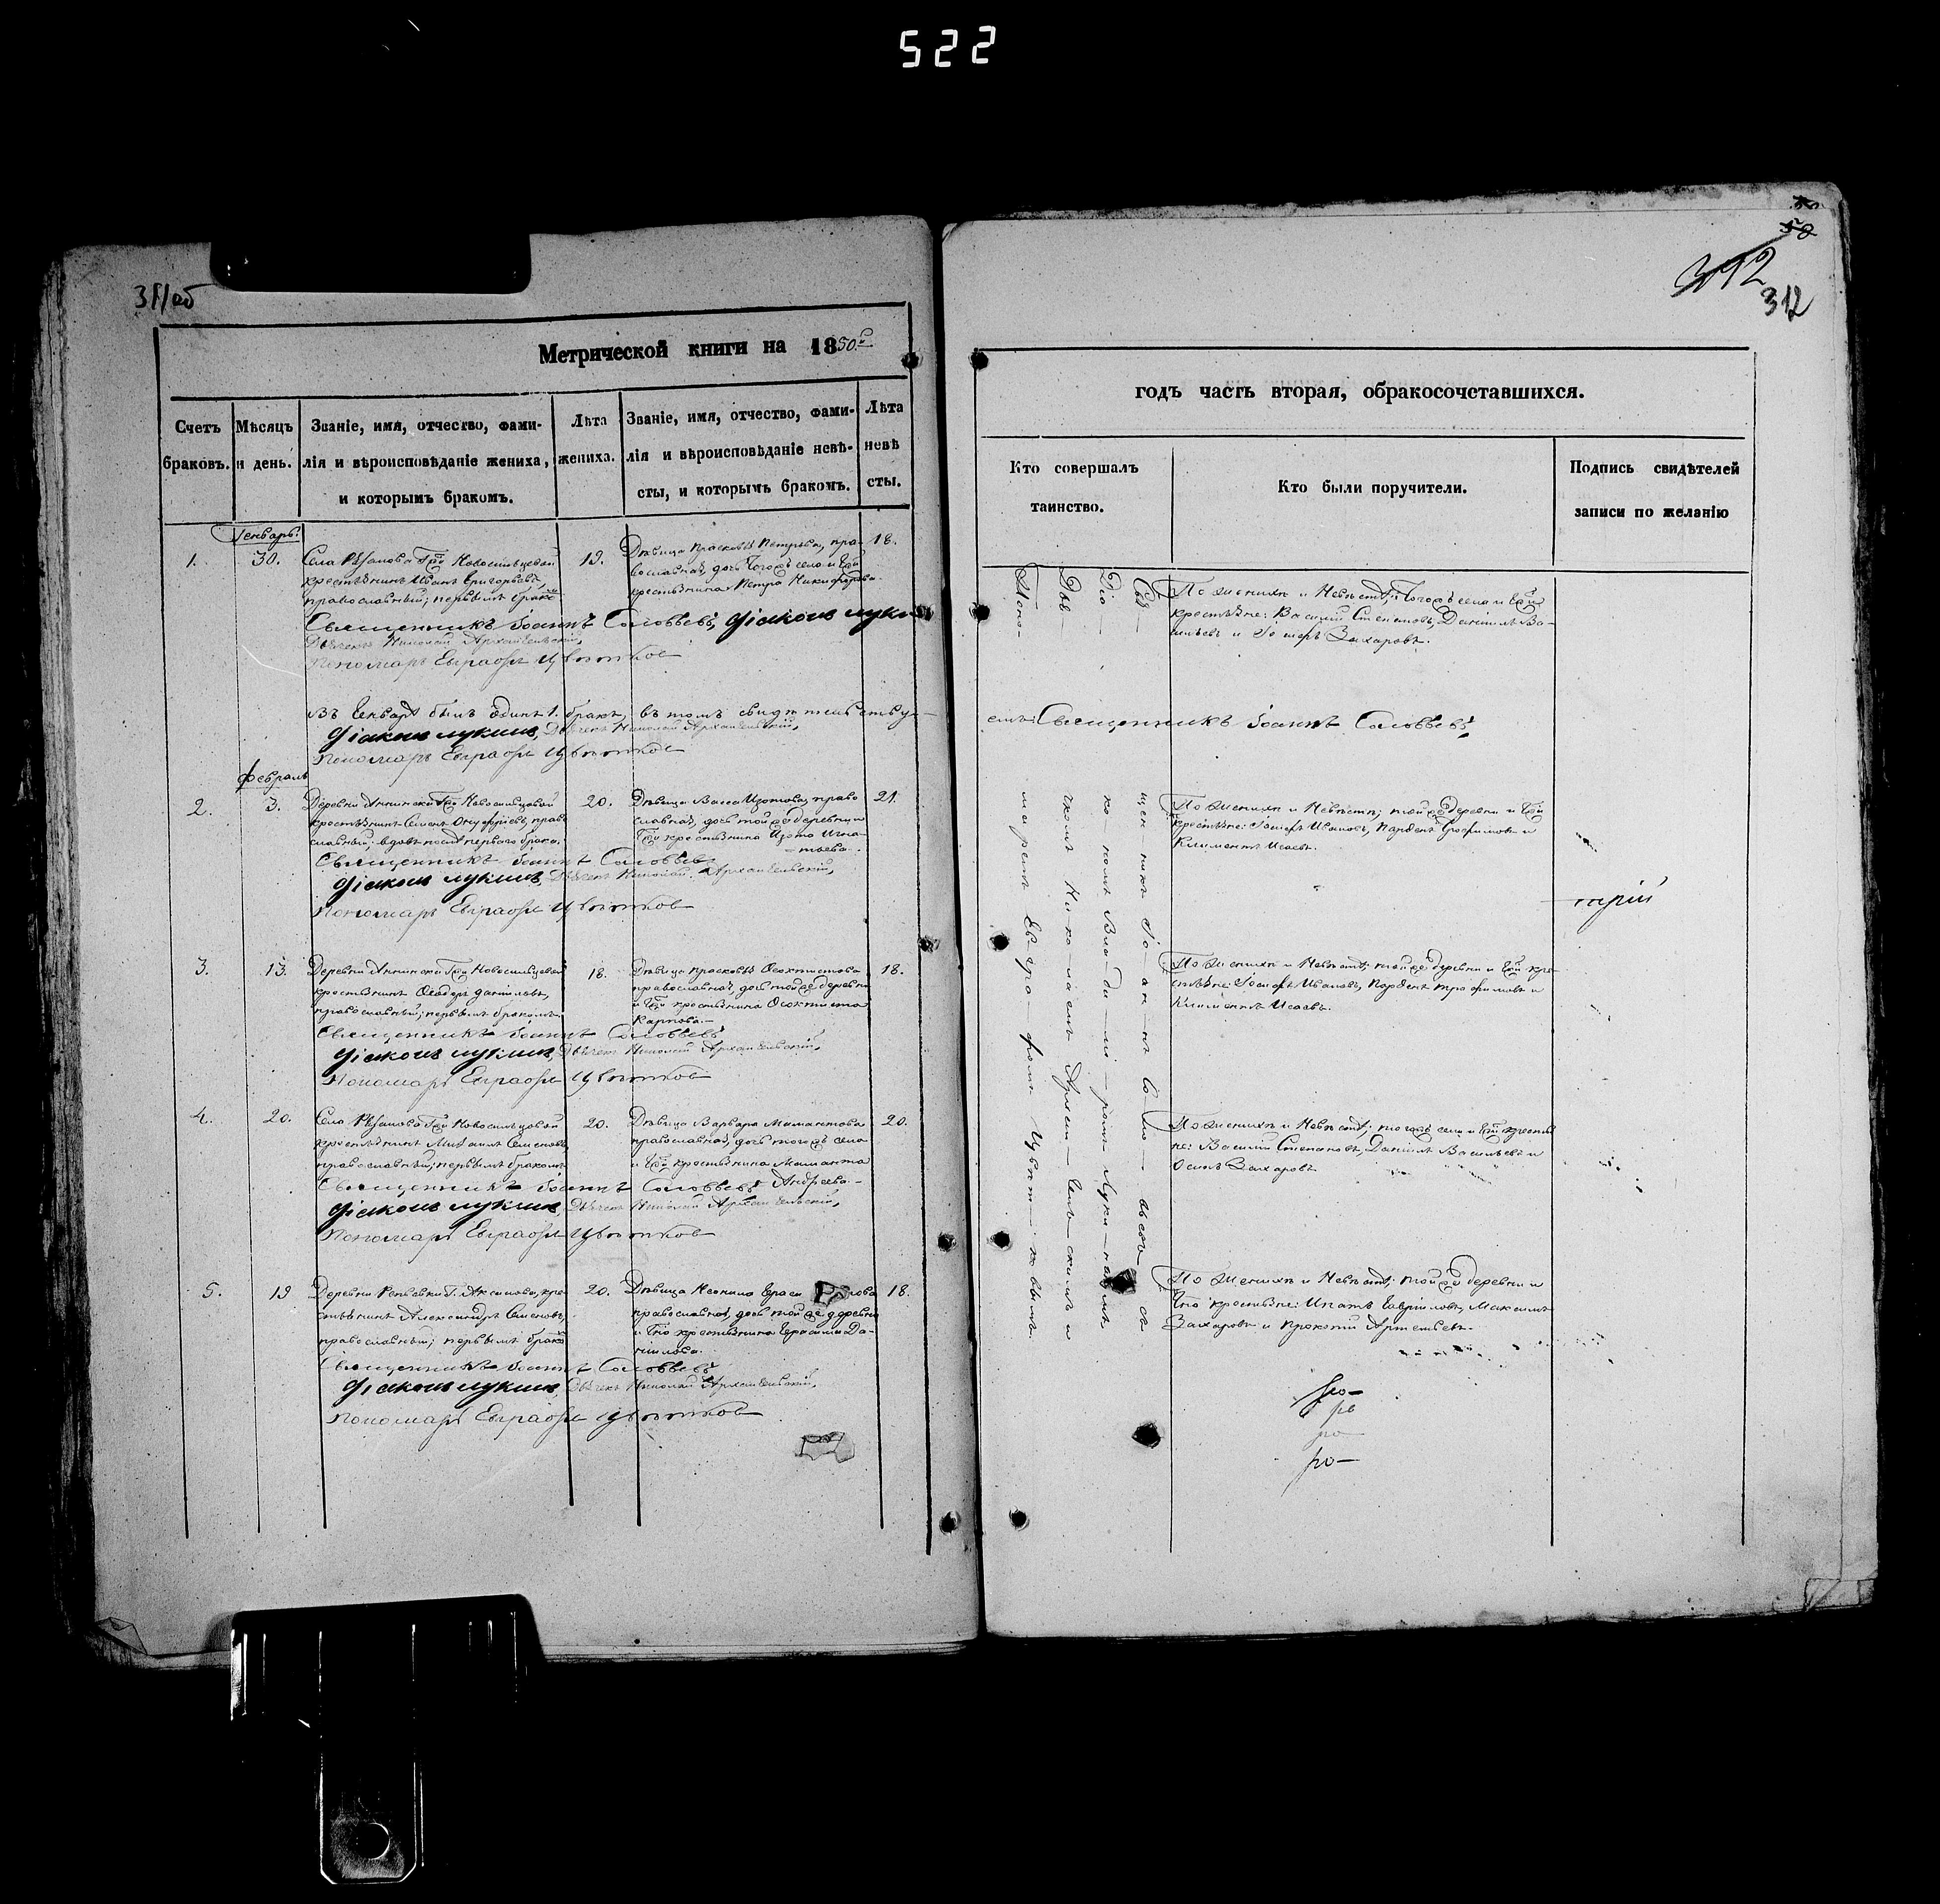 522
311об
Метрической книги на 1850й
Счетъ браковъ.
Мѣсяцъ и день.
Званіе, имя, отчество, фами-
лія и вѣроисповѣданіе жениха,
и которымъ бракомъ.
Лѣта жениха.
Званіе, имя, отчество, фами-
лія и вѣроисповѣданіе невѣ-
сты, и которымъ бракомъ.
Лѣта невѣ
сты.
Генварь.
1.
30.
крестьянинъ Иванъ Григорьевъ,
православный; первымъ
19.
Дѣвица Прасковья Петрова, пра-
вославная, дочь тогожъ села и
крестьянина Петра Никифорова.
18.
Священникъ Іоаннъ Соловьевъ, Діаконъ Лукинъ
Дьячекъ Николай Архангельскій,
Пономарь Евграфъ Цвѣтков
Въ Генварѣ былъ одинъ 1. бракъ, въ томъ свидѣтельству-
Діаконъ Лукинъ, Дьячекъ Николай Архангельскій,
Пономарь Евграфъ Цвѣтков
Февраль
2.
3.
крестьянинъ Семенъ право
славный; вдовъ послѣ перваго брака.
20.
Дѣвица Васса Изотова, право
славная, дочь той же деревни и
крестьянина Изота Игна-
тьева.
21.
Священникъ Іоаннъ Соловьев
Діаконъ Лукинъ, Дьячекъ Николай Архангельскій,
Пономарь Евграфъ Цвѣтков
3.
13.
крестьянинъ Ѳеодоръ Даніиловъ,
православный; первымъ бракомъ.
18.
Дѣвица Прасковья Ѳеоктистова
православная, дочь той же деревни
и крестьянина Ѳеоктиста
Карпова.
18.
Священникъ Іоаннъ Соловьевъ
Діаконъ Лукинъ, Дьячекъ Николай Архангельскій,
Пономарь Евграфъ Цвѣтков
4.
20.
крестьянинъ Михаилъ Семеновъ,
православный; первымъ бракомъ
20.
Дѣвица Варвара Мамантова
православная, дочь тогожъ села
и крестьянина Маманта
Андреева.
20.
Священникъ Іоаннъ Соловьевъ
Діаконъ Лукинъ, Дьячекъ Николай Архангельскій,
Пономарь Евграфъ Цвѣтков
5.
19
Деревни Репьевки Г. Аксакова, кре-
стьянинъ Александръ Семеновъ,
православный; первымъ
20.
Дѣвица
православная, дочь той же деревни
и Гно крестьянина Герасима Да-
нилова.
18.
Священникъ Іоаннъ Соловьевъ
Діаконъ Лукинъ, Дьячекъ Николай Архангельскій,
Пономарь Евграфъ Цвѣтков
58
312
312
годъ часть вторая, обракосочставшихся.
Кто совершалъ
таинство.
Кто были поручители.
Подпись свидѣтелей
записи по желанію
Свя- щен никъ Іо-ан-нъ Со ло- вьевъ съ
Діа- ко номъ Вла-ди-мі-ромъ Луки-нымъ
Дья- чкомъ Ни-ко-лаемъ Архан-гель-скимъ и
Поно- маремъ Ев-гра-фомъ Цвѣт-ковымъ.
По Женихѣ и Невѣстѣ; тогожъ села и
крестьяне: Василій Степановъ, Даніилъ Ва-
сильевъ и Іосифъ Захаровъ.
етъ: Священникъ Іоаннъ Соловьевъ,
По Женихѣ и Невѣстѣ; той же деревни и
крестьяне: Іосифъ Ивановъ, Трофимовъ и
Климентъ Исаевъ.
По Женихѣ и Невѣстѣ; той же деревни и кре-
стьяне: Іосифъ Ивановъ, Трофимовъ и
Климентъ Исаевъ.
По Женихѣ и Невѣстѣ; тогожъ села и крестья
не: Василій Степановъ, Даніилъ Васильевъ и
Осипъ Захаровъ.
По Женихѣ и Невѣстѣ; той же деревни и
Гно крестьяне: Игнатъ Гавриловъ, Максимъ
Захаровъ и Прокопій Артемьевъ.
ро-
ро-